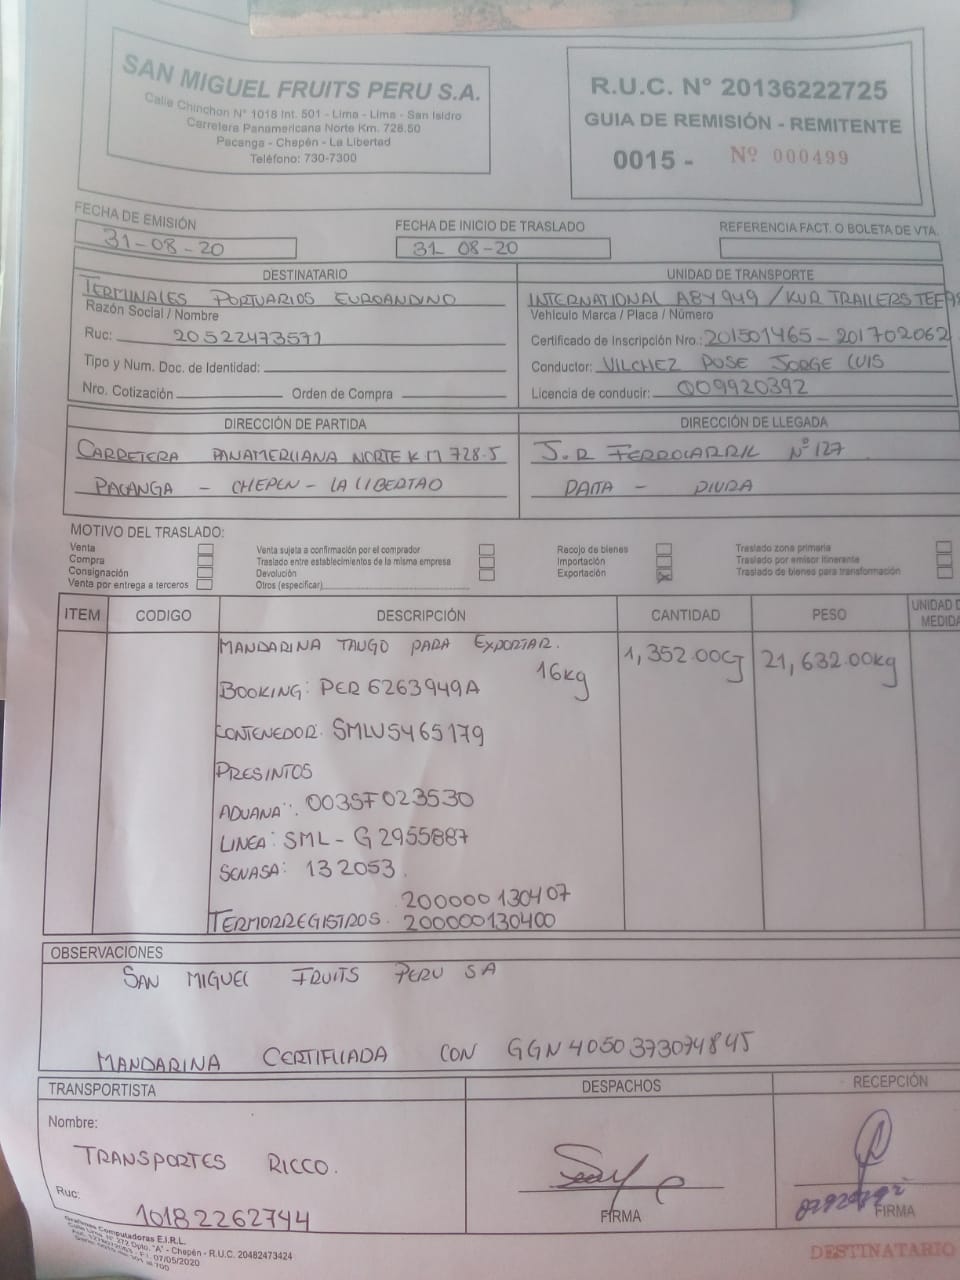 SAN MIGUEL FRUITS PERU S.A.
Calle Chinchon N° 1018 Int. 501 - Lima - Lima - San Isidro
Carretera Panamericana Norte Km. 728.50
Pacanga - Chepén - La Libertad
Teléfono: 730-7300
R.U.C. N° 20136222725
GUIA DE REMISIÓN - REMITENTE
0015 - Nº 000499
FECHA DE EMISIÓN
31-08-20
FECHA DE INICIO DE TRASLADO
31 08-20
REFERENCIA FACT. O BOLETA DE VTA.
DESTINATARIO
TERMINALES PORTUARIOS EUROANDINO
Razón Social / Nombre
Ruc: 20522473571
Tipo y Num. Doc. de Identidad:
Nro. Cotización Orden de Compra
UNIDAD DE TRANSPORTE
INTERNATIONAL A8Y949 / KUR TRAILERS
Vehículo Marca / Placa / Número
Certificado de Inscripción Nro.: 201501465-201702062
Conductor: VILCHEZ POSE JORGE LUIS
Licencia de conducir: Q09920392
DIRECCIÓN DE PARTIDA
CARRETERA PANAMERICANA NORTE KM 728.5
PACANGA - CHEPEN - LA LIBERTAD
DIRECCIÓN DE LLEGADA
J.R FERROCARRIL Nº 127
PAITA - PIURA
MOTIVO DEL TRASLADO:
Venta
Compra
Consignación
Venta por entrega a terceros
Venta sujeta a confirmación por el comprador
Traslado entre establecimientos de la misma empresa
Devolución
Otros (especificar)
Recojo de bienes
Importación
Exportación
Traslado zona primaria
Traslado por emisor itinerante
Traslado de bienes para transformación
ITEM CODIGO DESCRIPCIÓN CANTIDAD PESO UNIDAD D
MEDIDA
MANDARINA TANGO PARA EXPORTAR. 1,352.00CJ 21,632.00kg
16kg
BOOKING: PER 6263949A
CONTENEDOR: SMLU5465179
PRESINTOS
ADUANA: 003SF023530
LINEA: SML-G2955887
SENASA: 132053.
200000130407
TERMORREGISTROS. 200000130400
OBSERVACIONES
SAN MIGUEL FRUITS PERU SA
MANDARINA CERTIFICADA CON GGN 4050373074845
TRANSPORTISTA
Nombre:
TRANSPORTES RICCO.
Ruc:
10182262744
DESPACHOS
FIRMA
RECEPCIÓN
FIRMA
Graficos Computadoras E.I.R.L.
N° 272 Dpto. "A" - Chepén - R.U.C. 20482473424
F.I. 07/05/2020
DESTINATARIO